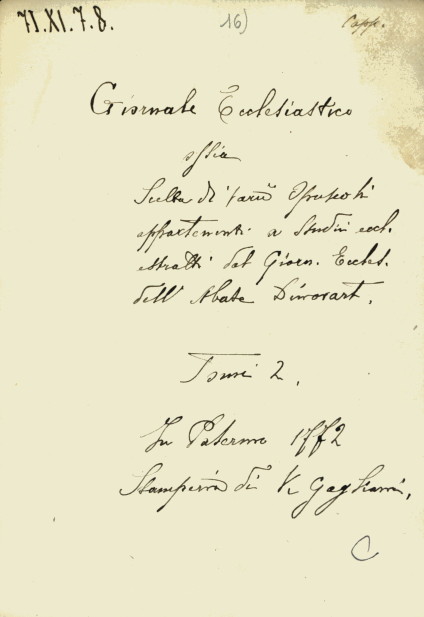 71.XI.7.8.
16)
Capp.
Giornale Ecclesiastico
ossia
Scelta di varii Opuscoli
appartenenti a Studii eccl.
estratti dal Giorn. Eccles.
dell' Abate Dinouart.
Tomi 2.
In Palermo 1772
Stamperia di V. Gagliani.
C